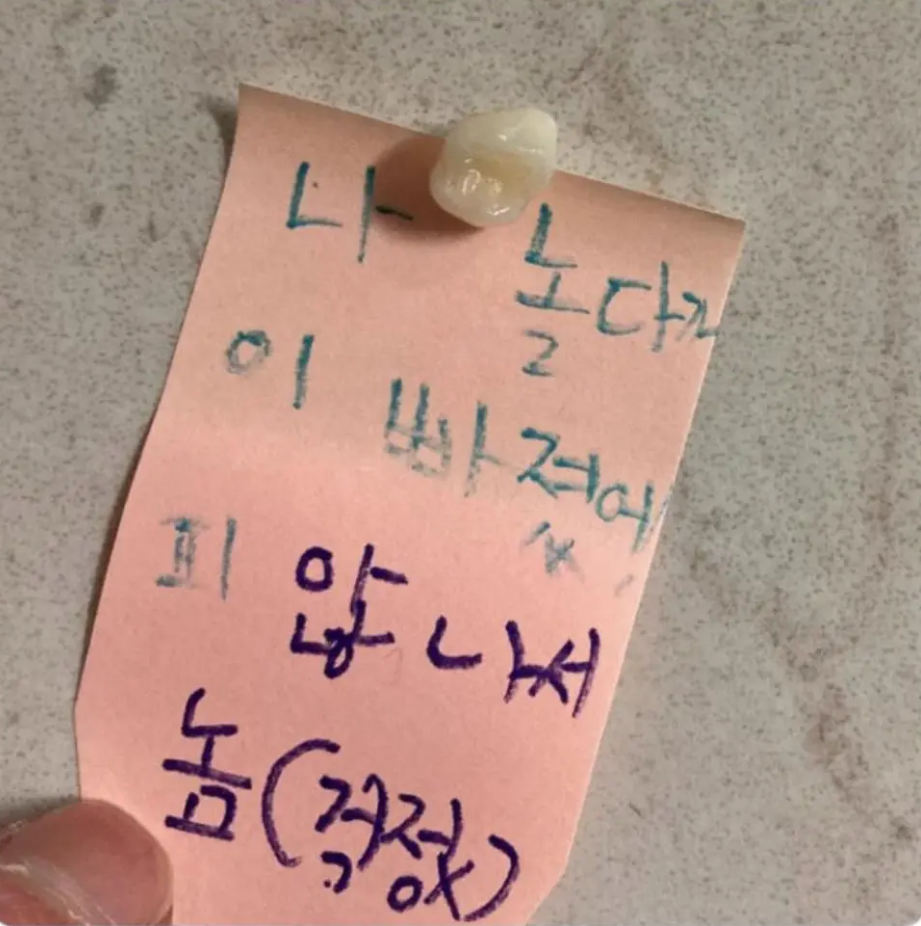 나 놀다가
이 빠졌어
피 않 나서
놈 (걱정x)